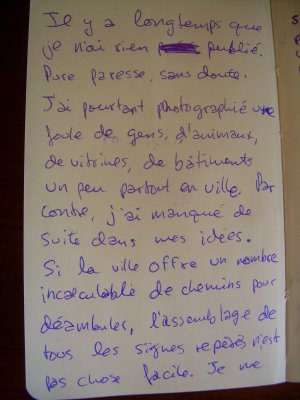 Il y a longtemps que
je n'ai rien publié.
Pure paresse, sans doute.
J'ai pourtant photographié une
foule de gens, d'animaux,
de vitrines, de bâtiments
un peu partout en ville. Par
contre, j'ai manqué de
suite dans mes idées.
Si la ville offre un nombre
incalculable de chemins pour
déambuler, l'assemblage de
tous les signes repérés n'est
pas chose facile. Je me